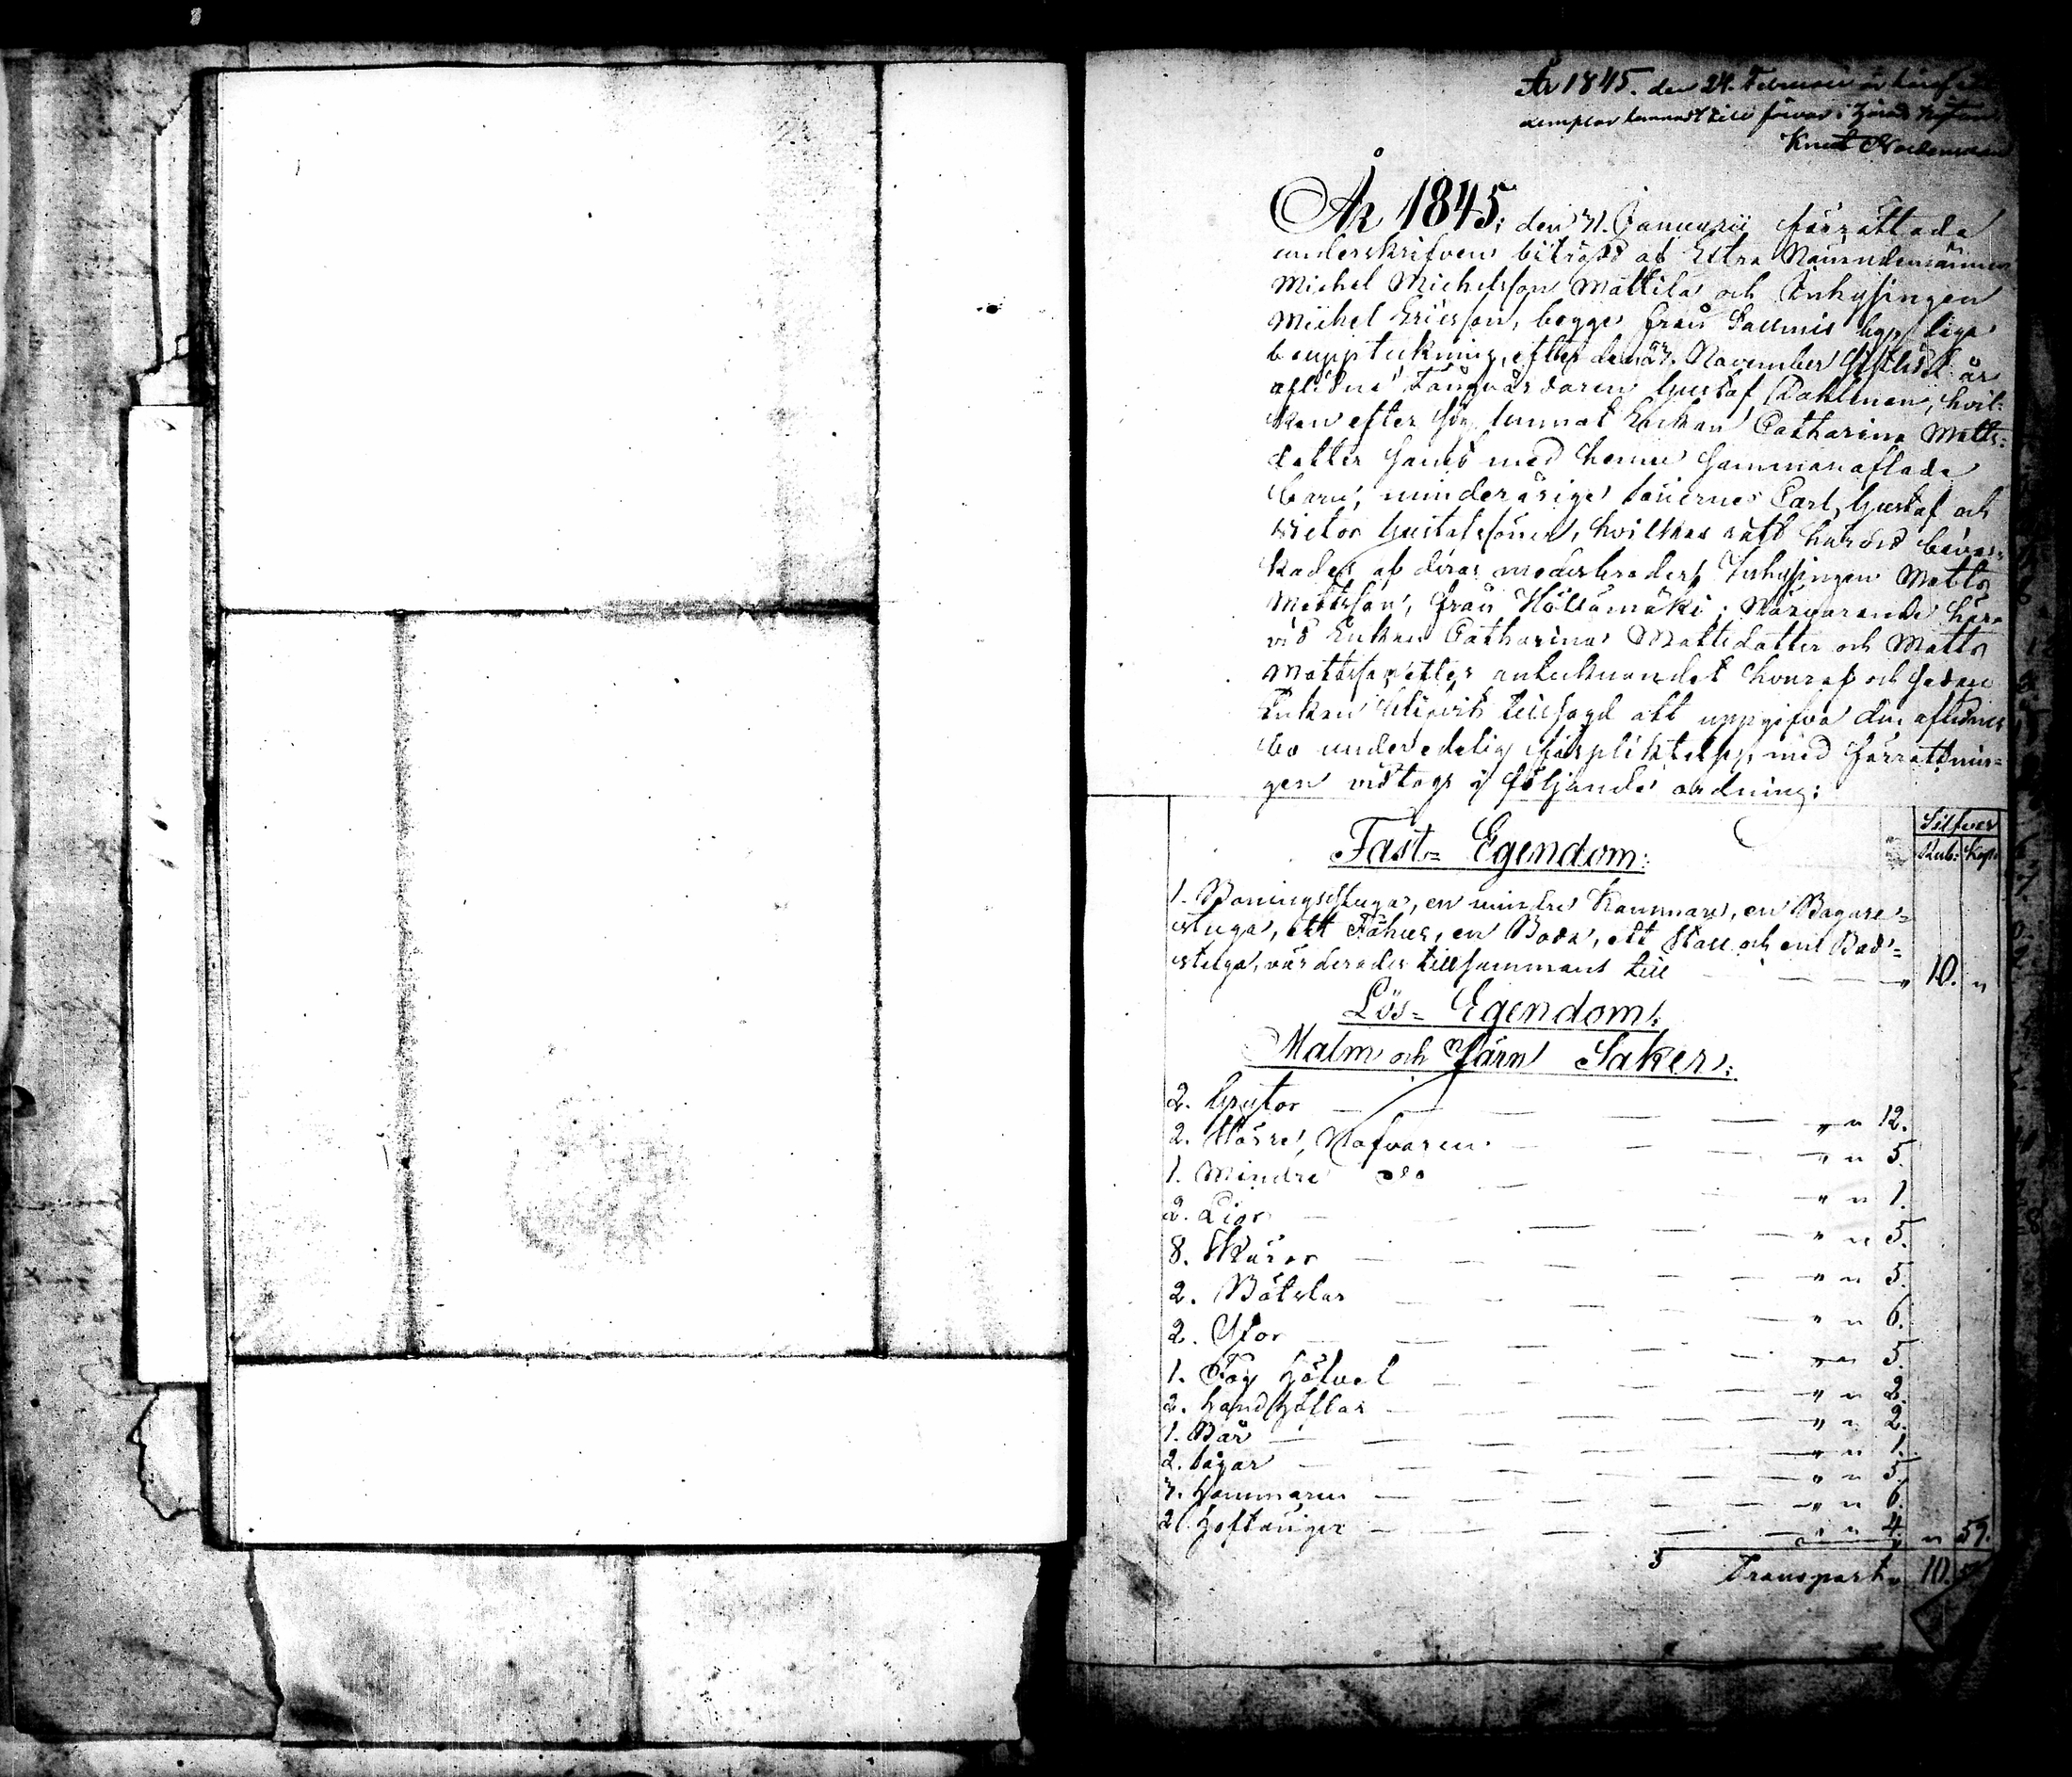 År 1845. den 24. Februari är häraf ett
exemplar lemnadt till förvar i Härads Kistan.
År 1845; den 31. Januarii förrättade
underskrifven biträdd af Extra Nämndemännen
Michel Michelsson Mattila och Inhysingen
Michel Ericsson, begge från by, laga
bouppteckning, efter den 27. November sistledit år
aflidne Gustaf Dahlman, hvil-
ken efter sig lemnat Enkan Catharina Matts-
dotter samt med henne sammanaflade
barn, minderårige sönerne Carl, Gustaf och
Victor Gustafssöner, hvilkas rätt härvid bevar-
kades af deras moderbroder Inhysingen Matts
Mattsson, från Hölsömäki; Närvarande härr
vid Enkan Catharina Mattsdotter och Matts
Mattsson, efter antecknandet hvaraf och sedan
Enkan blifvit tillsagd att uppgifva den aflidnes
bo under edelig förpliktelse, med förrättnin-
gen vidtogs i följande ordning:
Silfver
Rub: Kop:
Fast= Egendom:
1. Boningsstuga, en mindre Kammare, en Bagare-
stuga, ett Fähus, en Boda, ett Stall och en Bad-
stuga, värderades tillsammans till — — — " 10. "
Lös= Egendom:
Malm och Järn Saker:
2. Grytor — — — — " " 12.
2. Större Nafvaren — — — " " 5.
1. Mindre do — — — " " 1.
2. Liar — — — " " 5.
8. Skäror — — — " " 5.
2. Bötskar — — — " " 6.
2. Yxor — — — " " 5.
1. Fog Höfvel — — — " " 2.
2. Handhöflar — — — " " 2.
1. Bår — — — " " 1.
2. Sågar — — — " " 5.
3. Hammaren — — — " " 6.
2. Hoftänger — — — " " 4. " 59.
Transport " 10. 59.